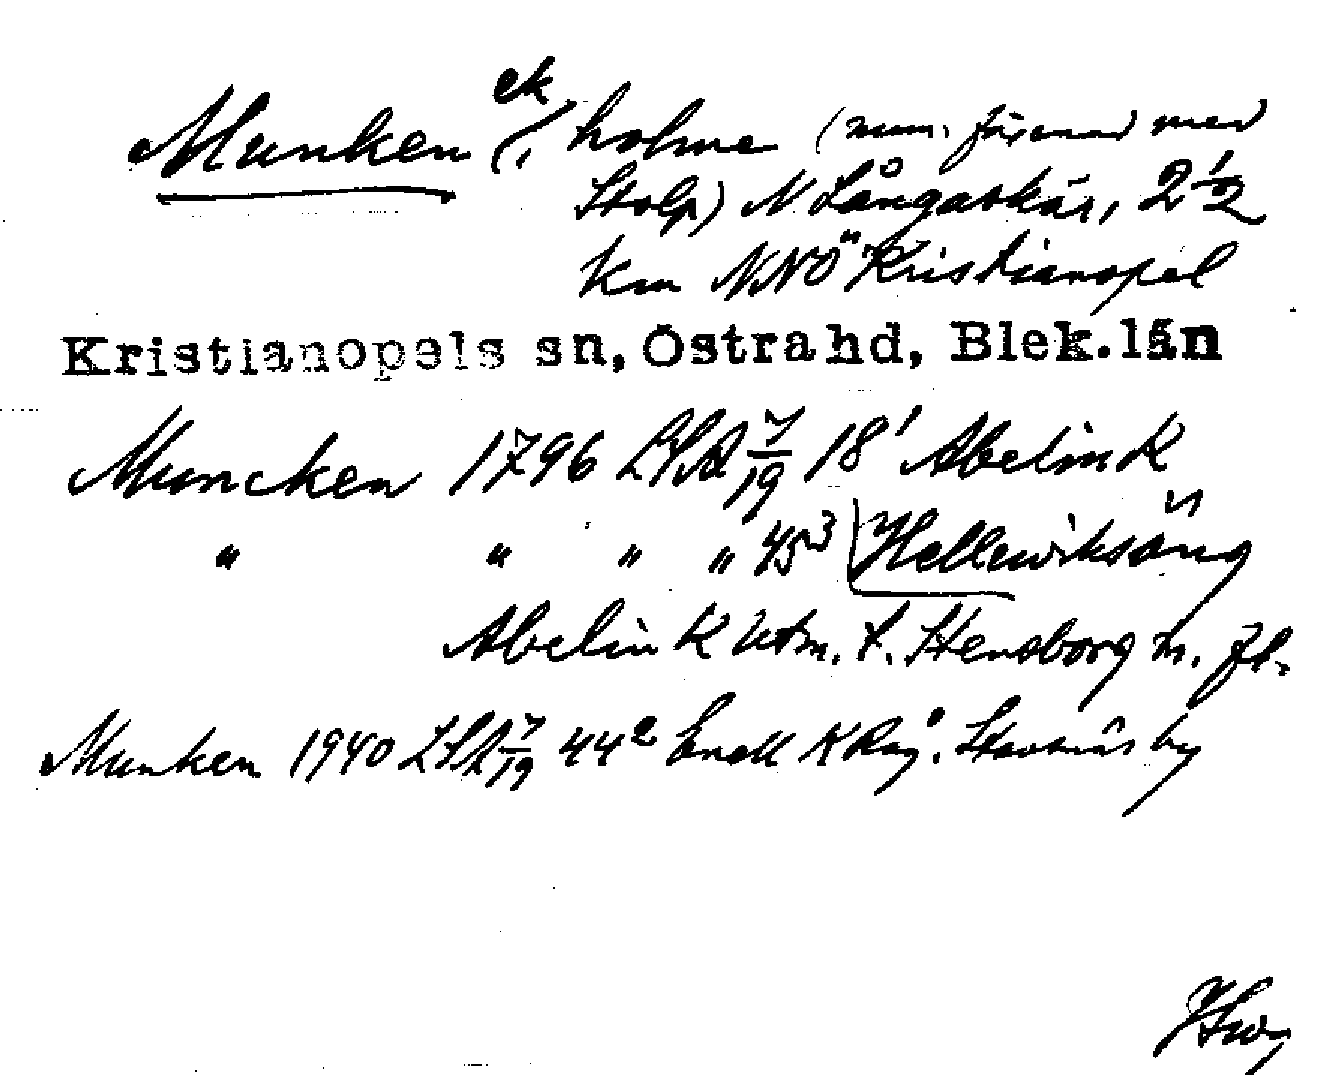 Munken ek holme (num. förenad med
Stolp) N Långaskär, 2 1/2
km NNÖ Kristianopel
Kristianopels sn, Östra hd, Blek. län
Muncken 1796 LSA 7/19 18¹ Abelin K
" " " " 45³ Hellewiksäng
Abelin K utm. t. Stensborg m. fl.
Munken 1940 LSA 7/19 44² Enell K Rågå. Stavsnäs by